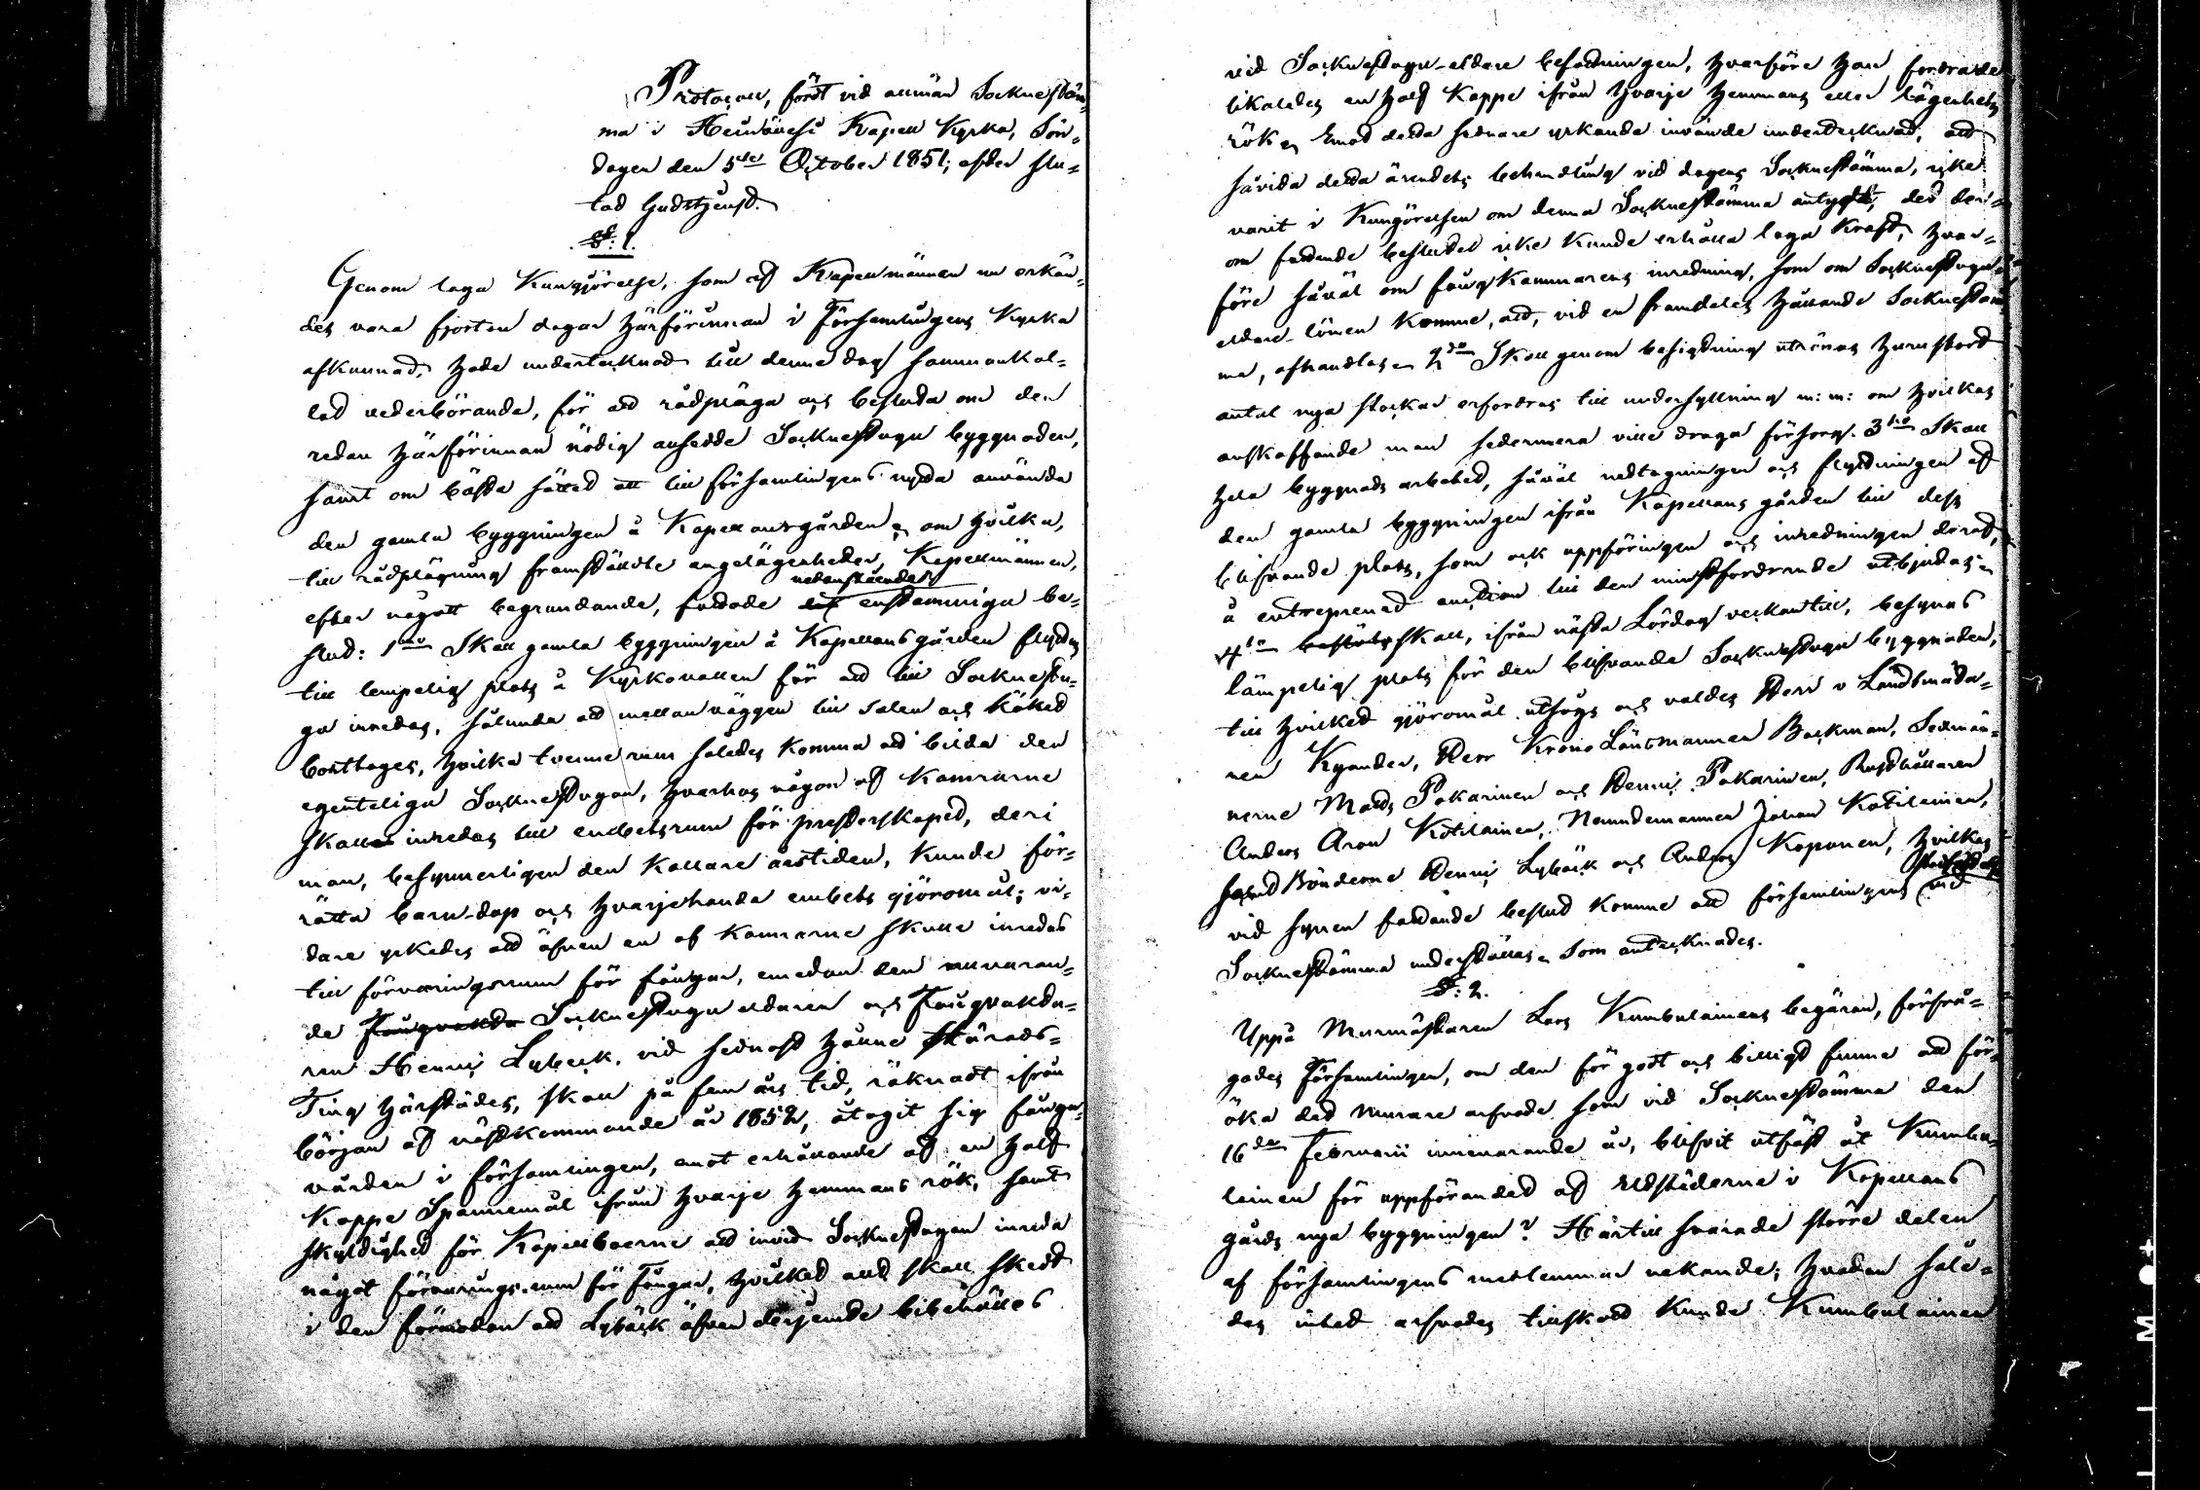 Protocoll, fördt vid allmän Sockneståm-
ma i Heinävesi Kapell Kyrka, Sön-
dagen den 5te October 1851, efter slu-
tad Gudstjenst.
§: 1.
Genom laga Kungjörelse, som af Kapellmännen nu erkän-
des vara fjorton dagar härförinnan i Församlingens Kyrka
afkunnad, hade undertecknad till denne dag sammankal-
lad vederbörande, för att rådpläga och besluta om den
redan härförinnan nödig ansedde Socknestugu byggnaden,
samt om bästa sättet att till församlingens nytta använda
den gamla byggningen å Kapellansgården, om hvilka,
till rådplägning framställdte angelägenheter, Kapellmännen,
efter något begrundande, fattade nedanstående enstämmiga be-
slut: 1mo Skall gamla byggningen å Kapellansgården flyttas
till lämpelig plats å Kyrkovallen för att till Socknestu-
ga inredas, sålunda att mellanväggen till salen och köket
borttages, hvilka tvenne rum således komma att bilda den
egenteliga Socknestugan, hvarhos någon af Kamrarne
skall inredas till embetsrum för presterskapet, deri
man, besynnerligen den kallare årstiden, kunde för-
rätta barn-dop och hvarjehanda embets gjöromål; vi-
dare yrkades att äfven en af Kamrarne skulle inredas
till förvaringsrum för fångar, emedan den nuvaran-
de Fångvakta Socknestugu eldaren och Fångvakta-
ren Henric Lyback, vid sednast hållne Härads-
Ting härstädes, skall på fem års tid, räknadt ifrån
början af nästkommande år 1852, åtagit sig fånga-
vården i församlingen, emot erhållande af en half
Kappe Spannemål ifrån hvarje hemmans rök, samt
skyldighet för Kapellboerne att invid Socknestugan inreda
något förvarings-rum för fångar, hvilket allt skall skett
i den förmodan att Lyback äfven derjemte bibehålles
vid Socknestugu-eldare befattningen, hvarföre han fordrade
likaledes en half Kappe ifrån hvarje hemmans eller lägenhets
rök. Emot detta sednare yrkande invände undertecknad, att
såvida detta ärendets behandling vid dagens Sockneståmma, icke
varit i Kungörelsen om denna Sockneståmma antydt, det der-
om fattande beslutet icke kunde erhålla laga kraft, hvar-
före såväl om fångkammarens inredning, som om Socknestugu
eldare-lönen komme, att, vid en framdeles hållande Socknestäm-
ma, afhandlas. 2do Skall genom besigtning utrönas huru stort
antal nya stockar erfordras till undersyllning m: m: om hvilkas
anskaffande man sedermera ville draga försorg. 3tio Skall
hela byggnads arbetet, såväl nedtagningen och flyttningen af
den gamla byggningen ifrån Kapellans gården till dess
blifvande plats, som ock uppföringen och inredningen deraf,
å entreprenad auction till den minstfordrande utbjudas.
4to beslöts skall, ifrån nästa Lördag verkantill, besynas
lämpelig plats för den blifvande Socknestugu byggnaden,
till hvilket gjöromål utsågs och valdes Herr v Landtmäta-
ren Kyander, Herr Krono Länsmannen Backman, Sexmän-
nerne Matts Pakarinen och Henric Pakarinen, Rusthållaren
Anders Aron Kotilainen, Nämndemannen Johan Kotilainen,
samt Bönderne Henric Lyback och Anders Koponen, hvilkas
vid synen fattande beslut komme att församlingens vid
Sockneståmma underställas. Som antecknades.
§: 2.
Uppå Murmästaren Lars Kumbulainens begäran, förfrå-
gades Församlingen, om den för godt och billigt funne att för-
öka det Murare arfvode som vid Sockneståmma den
16de Februarii innevarande år, blifvit utfäst åt Kumbu-
lainen för uppförandet af eldstäderne i Kapellans
gårds nya byggningen? Härtill svarade större delen
af församlingens medlemmar nekande; hvadan såle-
des intet arfvodes tillskott kunde Kumbulainen